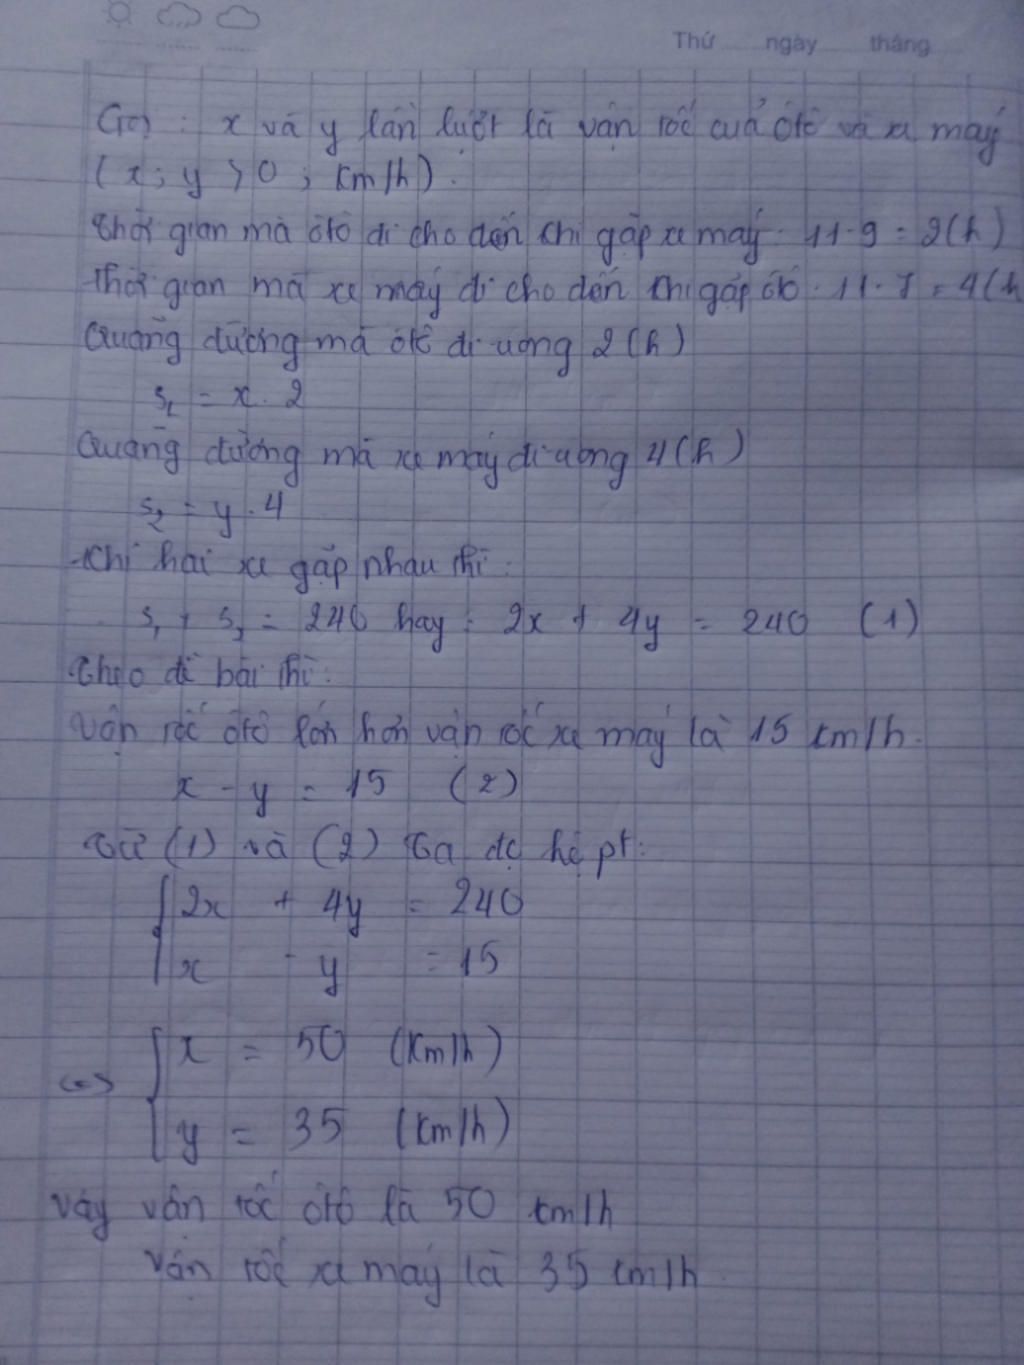 Thứ ngày tháng
Gọi : x và y lần lượt là vận tốc của ôtô và xe máy
( x ; y > 0 ; km/h ) .
Thời gian mà ôtô đi cho đến khi gặp xe máy : 11 - 9 = 2(h)
Thời gian mà xe máy đi cho đến khi gặp ôtô . 11 - 7 = 4(h
Quãng đường mà ôtô đi trong 2 (h)
S1 = x . 2
Quãng đường mà xe máy đi trong 4 (h)
S2 = y . 4
Khi hai xe gặp nhau thì :
S1 + S2 = 240 hay : 2x + 4y = 240 (1)
Theo đề bài thì :
Vận tốc ôtô lớn hơn vận tốc xe máy là 15 km/h .
x - y = 15 (2)
Từ (1) và (2) Ta đc hệ pt :
2x + 4y = 240
x - y = 15
<=> x = 50 (km/h)
y = 35 (km/h)
Vậy vận tốc ôtô là 50 km/h
Vận tốc xe máy là 35 km/h